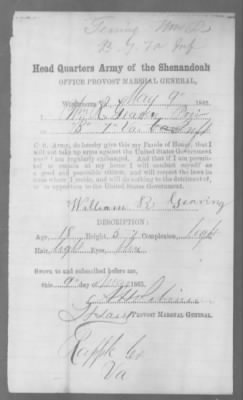 B 7 Va Inf
Head Quarters Army of the Shenandoah
OFFICE PROVOST MARSHAL GENERAL,
Winchester Va May 9th 1865.
I, Wm R
B 7 Va Inf
C. S. Army, do hereby give this my Parole of Honor, that I
will not take up arms against the United States Government
until I am regularly exchanged. And that if I am permitted
to remain at my home I will conduct myself as
a good and peaceable citizen, and will respect the laws in
force where I reside, and will do nothing to the detriment of,
or in opposition to the United States Government.
William R.
DESCRIPTION:
Age, 18 Height, 5 7 Complexion, light
Hair, light Eyes, blue
Sworn to and subscribed before me,
this 9th day of May 1865.
PROVOST MARSHAL GENERAL.
Rappk Co
Va